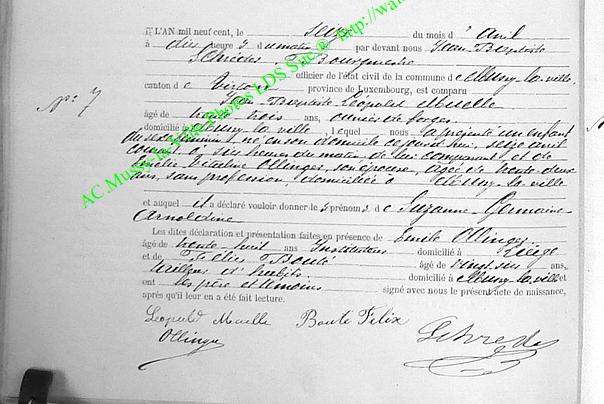 L'AN mil neuf cent, le seize du mois d'Avril
à dix heures du matin par devant nous Jean-Baptiste
Schréder, Bourgmestre
officier de l'état civil de la commune de Mussy-la-ville,
canton de Virton province de Luxembourg, est comparu
N° 7
Jean-Baptiste Léopold Muelle
âgé de trente trois ans, ouvrier de forges
domicilié à Mussy-la-ville lequel nous a présenté un enfant
du sexe féminin, né en son domicile ce jourd'hui, seize avril
courant à six heures du matin, de lui comparant et de
Ollinger, son épouse, âgée de trente deux
ans, sans profession, domiciliée à Mussy-la-ville
et auquel il a déclaré vouloir donner les prénoms de Suzanne-Germaine-
Arnoldine
Les dites déclaration et présentation faites en présence de Emile Ollinger
âgé de trente huit ans Instituteur domicilié à
et de Félix Bouté âgé de vingt six ans,
domicilié à Mussy-la-ville et
ont les père et témoins signé avec nous le présent acte de naissance,
après qu'il leur en a été fait lecture.
Léopold Muelle Bouté Félix
Ollinger Schreder
AC.Mussy-la-Ville Photos LDS Site @ http://wa